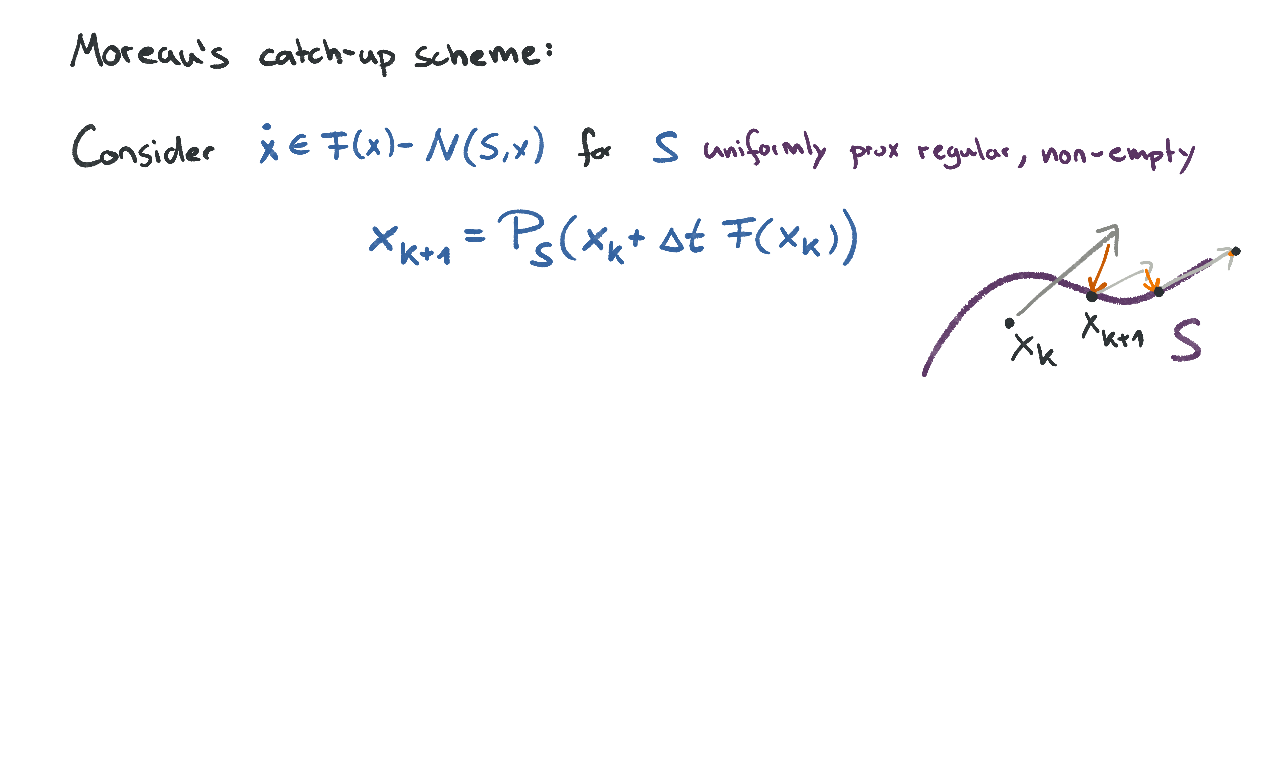 Moreau's catch-up scheme:
Consider ẋ ∈ F(x) - N(S,x) for S uniformly prox regular, non-empty
x_{k+1} = P_S(x_k + Δt F(x_k))
x_k
x_{k+1}
S